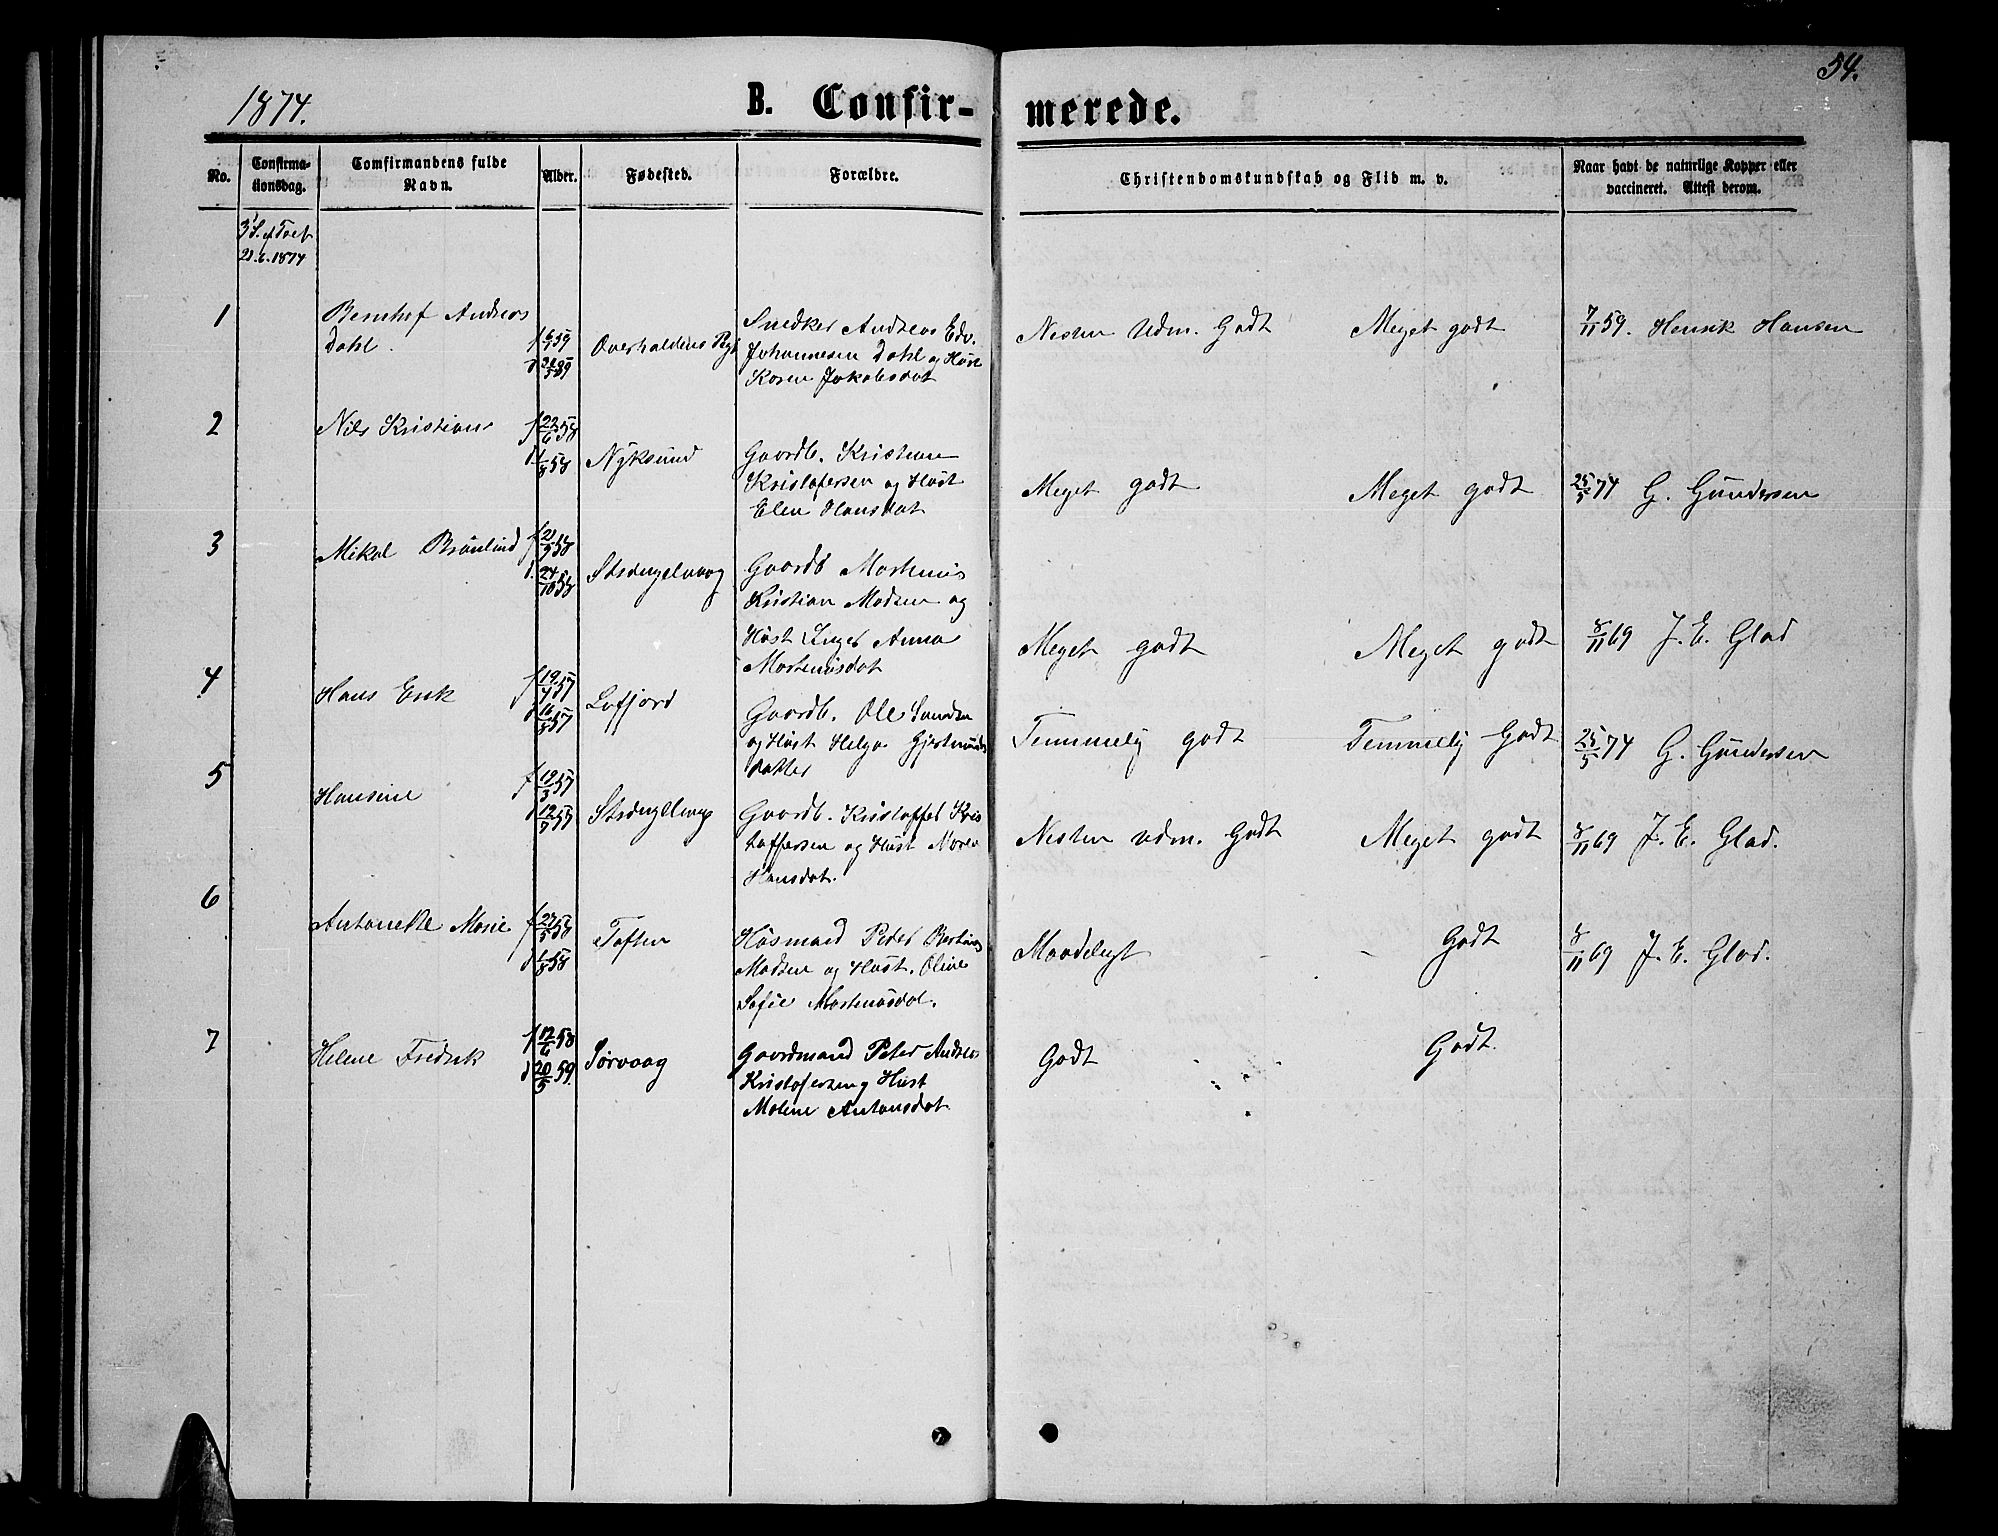 54.
1874.
B. Confir-merede.
No.
Confirma-
tionsdag.
Comfirmandens fulde
Navn.
Alder.
Fødested.
Forældre.
Christendomskundskab og Flid m. v.
Naar havt de naturlige Kopper eller
vaccineret. Attest derom.
3' S. ef Tref
21.6.1874
1
Bernhof Andreas
Dahl.
f 6/1 59
Overhaldens Pgj
Snedker Andreas Edv.
Johannesen Dahl og Hust
Karen Jakobsdat
Nesten Udm. Godt
Meget godt
7/11 59. Henrik Hansen
2
Nils Kristian
f 22/6 58
d 1/8 58
Nyksund
Gaardb. Kristian
Kristofersen og Hust
Elen Hansdat
Meget godt
Meget godt
25/5 74 G. Gundersen
3
Mikal Brønlund
f 21/9 58
d. 24/10 58
Strengelvaag
Gaardb Martinus
Kristian Madsen og
Hust Inger Anna
Martinusdat
Meget godt
Meget godt
8/11 69 J. E. Glad
4
Hans Erik
f 19/4 57
d 16/8 57
Lofjord
Gaardb. Ole
og Hust Helga
datter
Temmelig godt
Temmelig Godt
25/5 74 G. Gundersen
5
Hansine
f 19/3 57
Strengelvaag
Gaardb. Kristoffer Kris
toffersen og Hust Maren
Hansdat.
Nesten udm. Godt
Meget godt
8/11 69 J. E. Glad.
6
Antonette Marie
f 27/5 58
d 1/8 58
Toften
Husmand Peder Bertinus
Madsen og Hust. Oline
Sofie Martinusdat.
Maadeligt
Godt
8/11 69 J. E. Glad.
7
Helene Fredrik
f 12/6 58
d 20/5 59.
Sørvaag
Gaardmand Peter Andreas
Kristofersen og Hust
Maline Antonsdat
Godt
Godt.